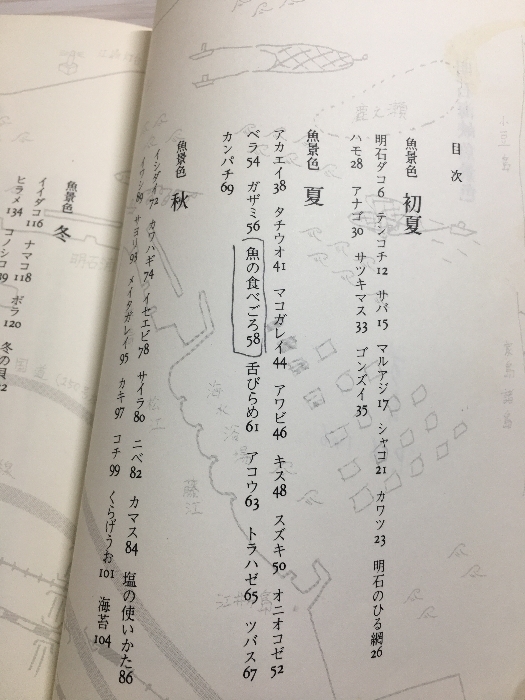 目次
魚景色 初夏
明石ダコ6 テンコチ12 サバ15 マルアジ17 シャコ21 カワツ23 明石のひる網26
ハモ28 アナゴ30 サツキマス33 ゴンズイ35
魚景色 夏
アカエイ38 タチウオ41 マコガレイ44 アワビ46 キス48 スズキ50 オニオコゼ52
ベラ54 ガザミ56 魚の食べごろ58 舌びらめ61 アコウ63 トラハゼ65 ツバス67
カンパチ69
魚景色 秋
イシダイ72 カワハギ74 イセエビ78 サイラ80 ニベ82 カマス84 塩の使いかた86
イワシ89 サヨリ93 メイタガレイ95 カキ97 コチ99 くらげうお101 海苔104
魚景色 冬
イイダコ116 ナマコ118 ボラ120 冬の貝
ヒラメ134 コノシロ
藤江